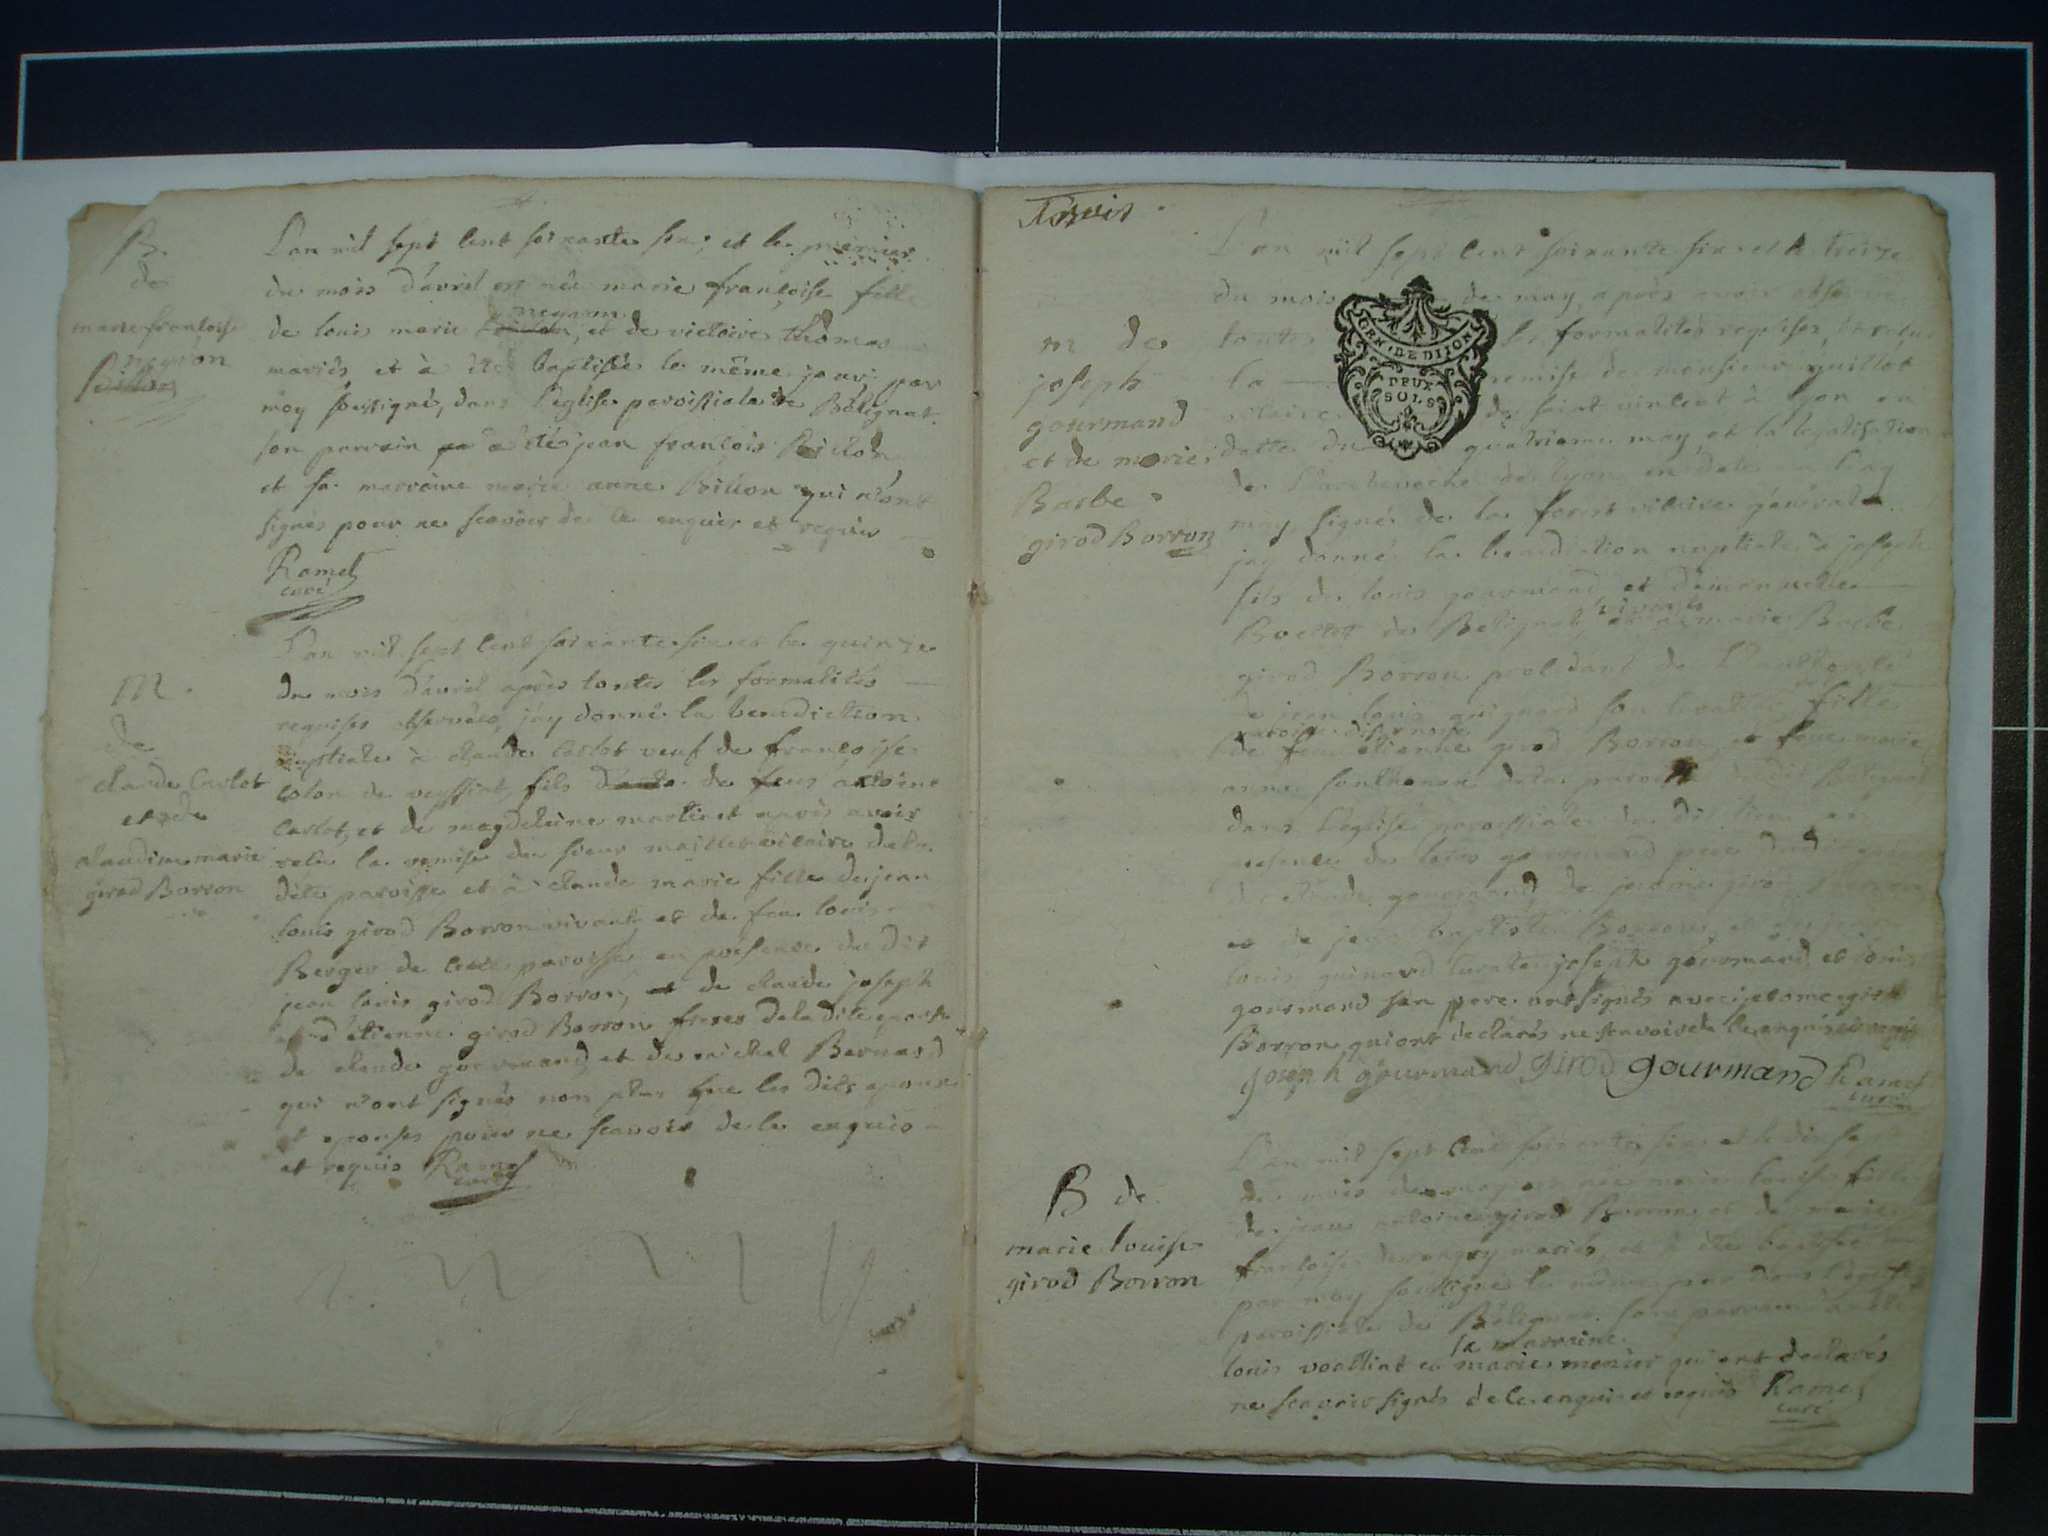 B.
de
marie françoise
negron
L'an mil sept cent soixante six, et le premier
du mois d'avril est née marie françoise fille
negron
de louis marie et de victoire thomas
mariés et à été baptisée le même jour par
moy soussigné, dans l'eglise paroissiale de Bélignat.
son parrain a été jean francois
et sa marraine marie anne Billion qui n'ont
signés pour ne scavoir de ce enquis et requis
Ramel
curé
M.
de
claude Carlot
et de
claudine marie
girod Borron
L'an mil sept cent soixante six et le quinze
du mois d'avril après toutes les formalités
requises observées, j'ay donné la benediction
nuptiale à claude Carlot veuf de françoise
colon de veyssiat, fils de feus antoine
Carlot, et de magdeleine martinet après avoir
relu la remise du sieur maillet vicaire de la
dite paroisse et à claude marie fille de jean
louis girod Borron vivant, et de feu louise
Berger de cette paroisse en présence du dit
jean louis girod Borron, de claude joseph
et d'étienne girod Borron freres de la dite epouse
de claude gourmand, et de michel Bernard
qui n'ont signés non plus que les dits epoux
et epouses pour ne scavoir de ce enquis
et requis Ramel
curé
Trois
GEN. DE DIJON
DEUX
SOLS
m de
joseph
gourmand
et de marie
Barbe
girod Borron
L'an mil sept cent soixante six et le treize
du mois de may, après avoir observé
toutes les formalités requises, et reçu
la remise de monsieur guillot
vicaire de saint vincent à lyon en
datte du quatrieme may, et la legalisation
de l'archeveché de lyon en date du cinq
may signé de la forest vicaire général
jay donné la benediction nuptiale à joseph
fils de louis gourmand et d'emanuelle
vivants
de Bélignat, et à marie Barbe
girod Borron procedant de l'authorité
de jean louis guignard son curateur fille
de feu étienne girod Borron, et feue marie
anne de la paroisse
dans l'eglise paroissiale du dit lieu en
presence de louis gourmand pere
de claude gourmand, de jerome girod Borron
et de jean baptiste Borron, et de jean
louis guinard curateur joseph gourmand, et louis
gourmand son pere ont signés avec jerome girod
Borron qui ont declarés ne scavoir de ce enquis et requis
Joseph gourmand girod gourmand Ramel
curé
B de
marie louise
girod Borron
L'an mil sept cent soixante six et le dix sept
du mois de may est née marie louise fille
de jean antoine girod Borron et de marie
françoise mariés, et à été baptisée
par moy soussigné le même jour dans l'eglise
paroissiale de Bélignat. son parrain a été
la marraine
louis voalliat et marie mercier qui ont declarés
ne scavoir signés de ce enquis et requis Ramel
curé